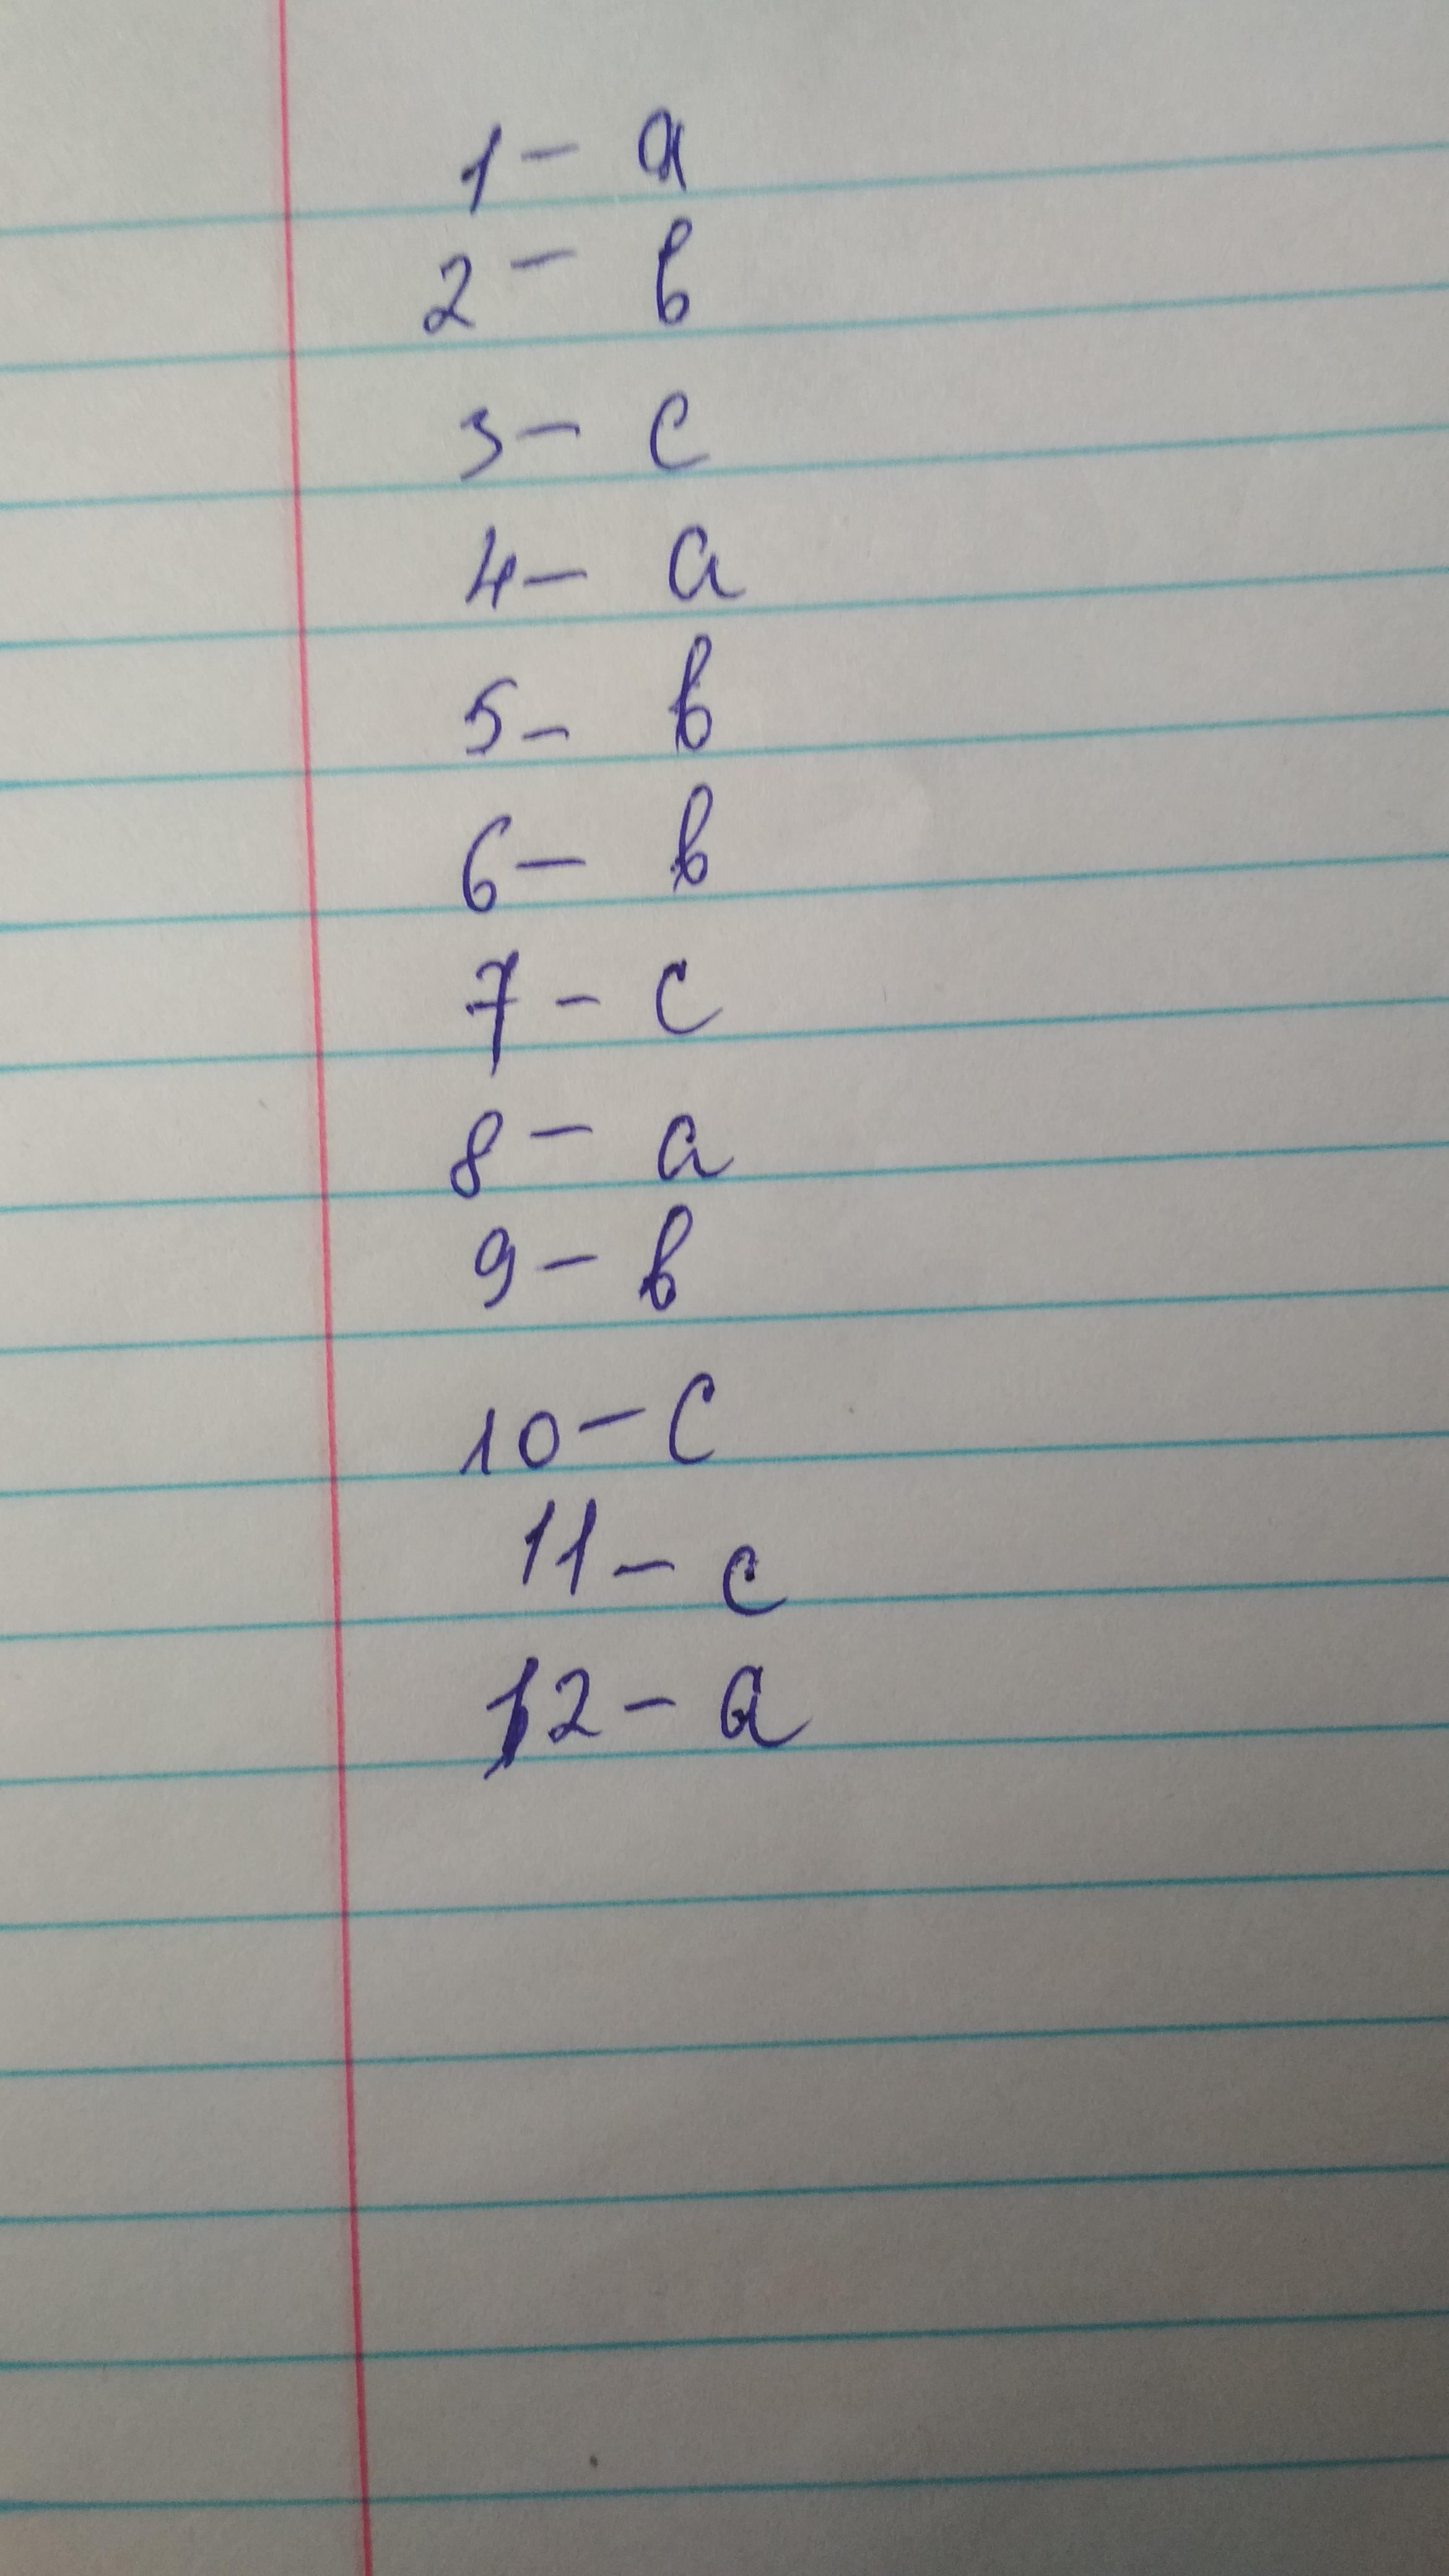 1 - a
2 - b
3 - c
4 - a
5 - b
6 - b
7 - c
8 - a
9 - b
10 - c
11 - c
12 - a